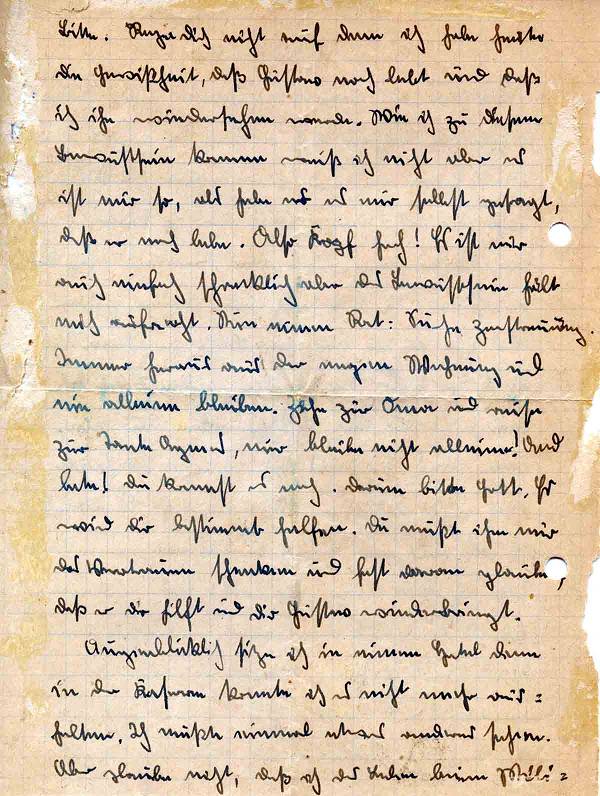 Bitte. Rege dich nicht auf denn ich habe heute
die Gewißheit, daß Gustav noch lebt und daß
ich ihn wiedersehen werde. Wie ich zu diesem
Bewustsein komme weiß ich nicht aber es
ist mir so, als habe es mir selbst gesagt,
daß er noch lebe. Also Kopf hoch! Es ist mir
auch einfach schrecklich aber das Bewustsein hält
mich aufrecht. Nun einen Rat: Suche Zerstreuung.
Immer heraus aus der engen Wohnung und
nie alleine bleiben. Ziehe zur Oma und reise
zur Tante Agnes, nur bleibe nicht alleine! Und
bete! Du kannst es noch. Darum bitte Gott. Er
wird dir bestimmt helfen. Du mußt ihm nur
das Vertrauen schenken und fest daran glauben,
daß er dir hilft und dir Gustav wiederbringt.
Augenblicklich sitze ich in einem Hotel denn
in der Kaserne konnte ich es nicht mehr aus=
halten. Ich mußte einmal etwas anderes sehen.
Aber glaube nicht, daß ich das Leben beim Mili=